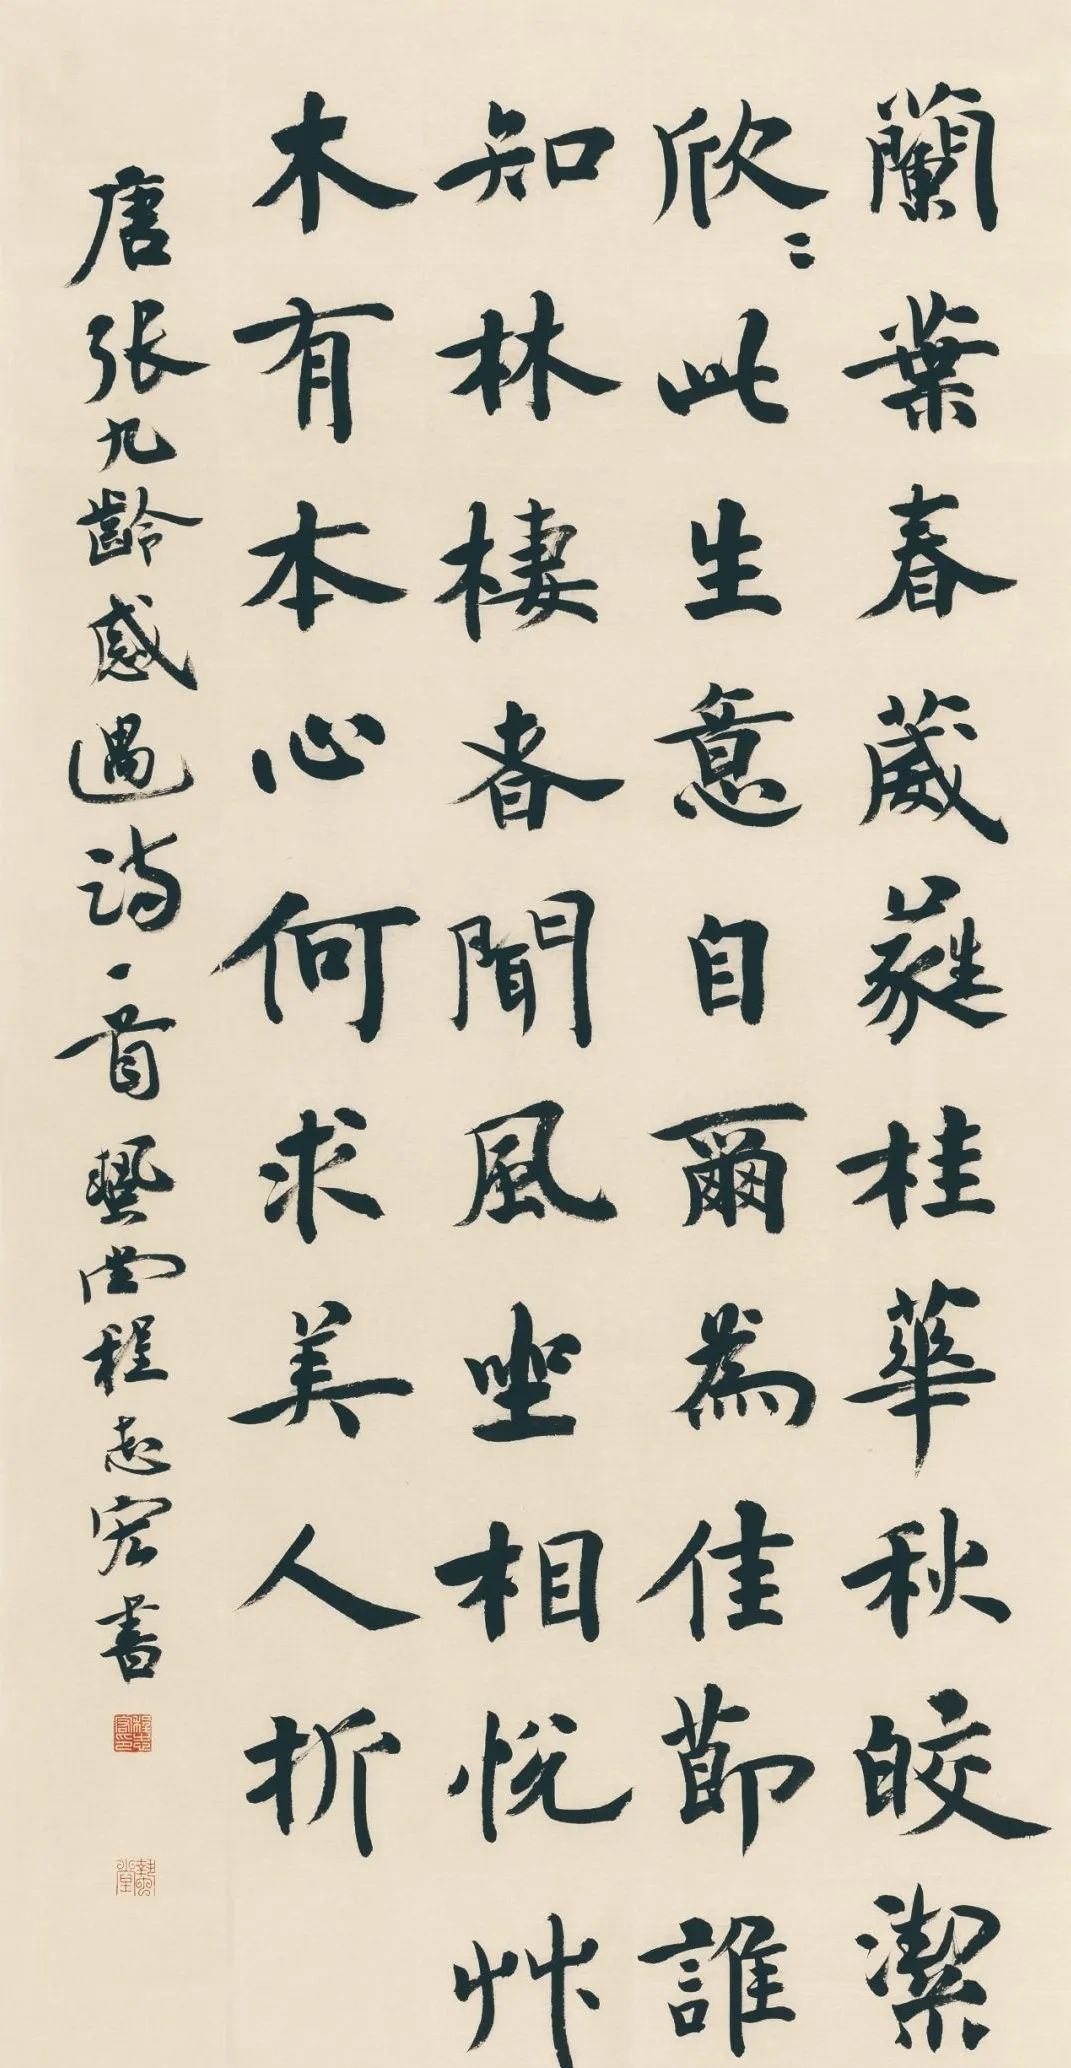 蘭葉春葳蕤桂華秋皎潔
欣〻此生意自爾為佳節誰
知林棲者聞風坐相悅艸
木有本心何求美人折
唐張九齡感遇詩一首 程志宏書